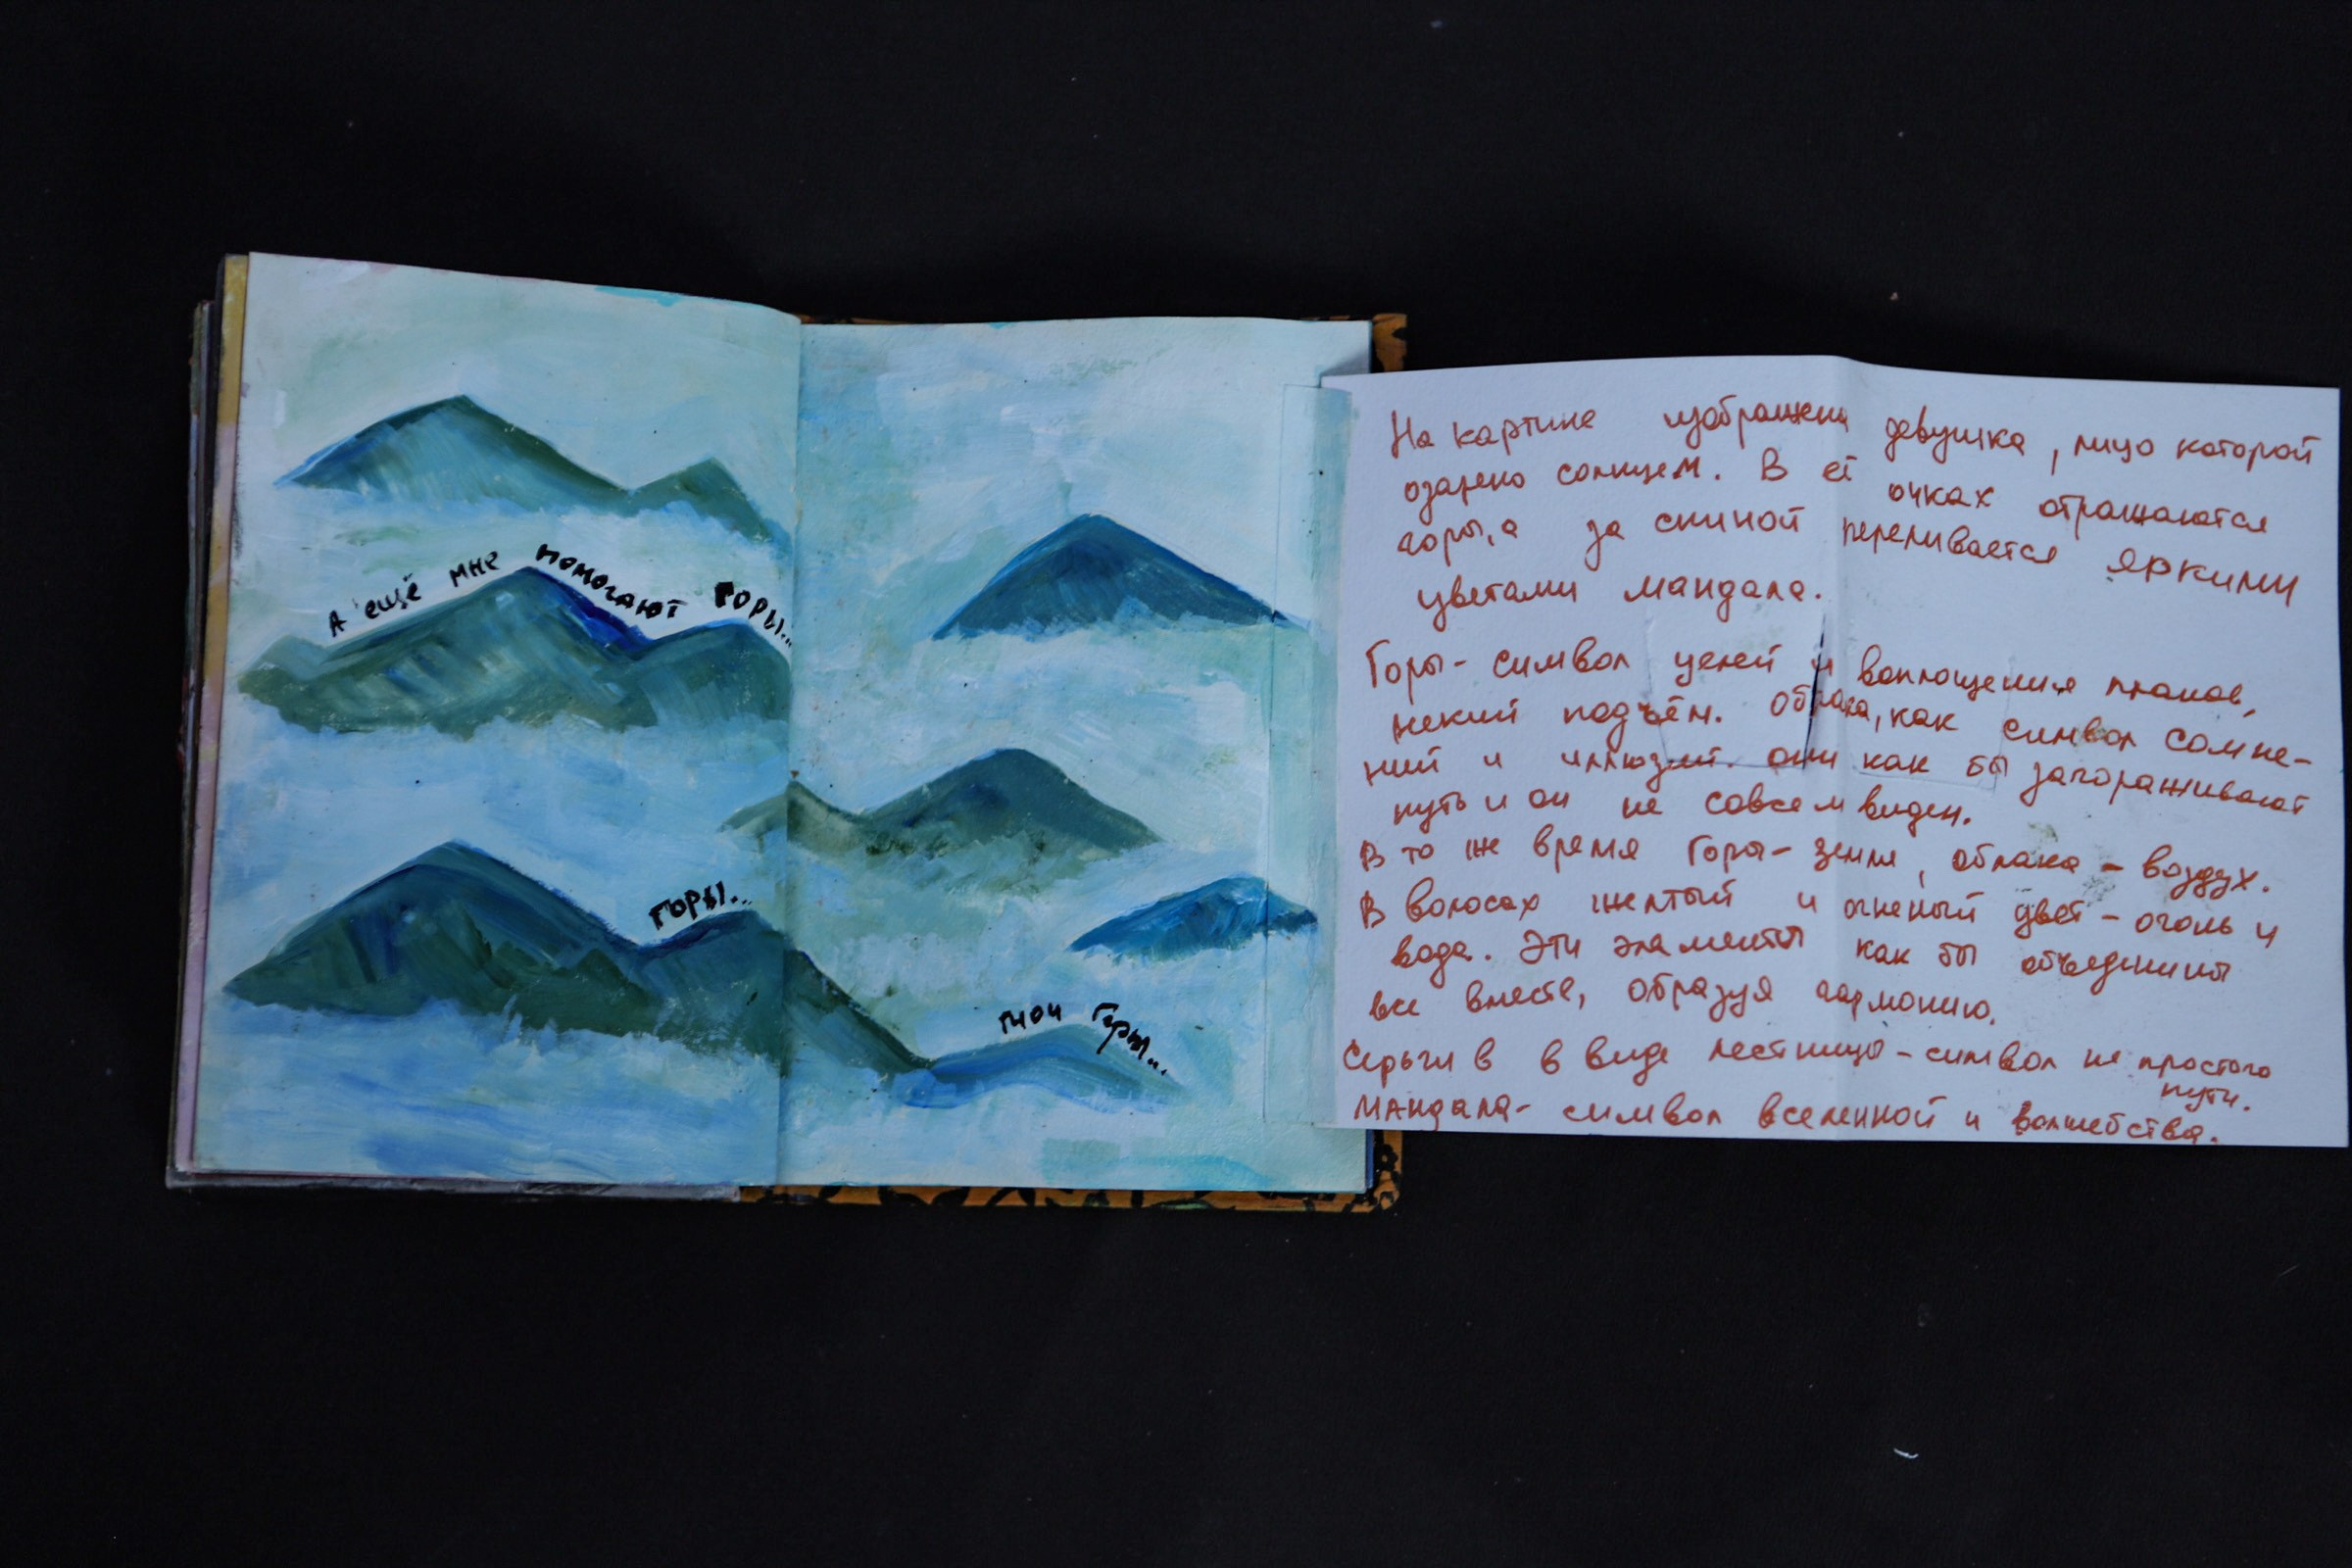 А ещё мне помогают горы...
горы...
мои Горы...
На картине изображена девушка, лицо которой
озарено солнцем. В её очках отражаются
горы, а за спиной переливается яркими
цветами мандала.
Горы - символ целей и воплощения планов,
некий подъём. Облака, как символ сомне-
ний и иллюзий. они как бы загораживают
путь и он не совсем виден.
В то же время Горы - земля, облака - воздух.
В волосах желтый и огненый цвет - огонь и
вода. Эти элементы как бы объединины
все вместе, образуя гармонию.
Серьги в в виде лестницы - символ не простого
пути.
Мандала - символ вселенной и волшебства.